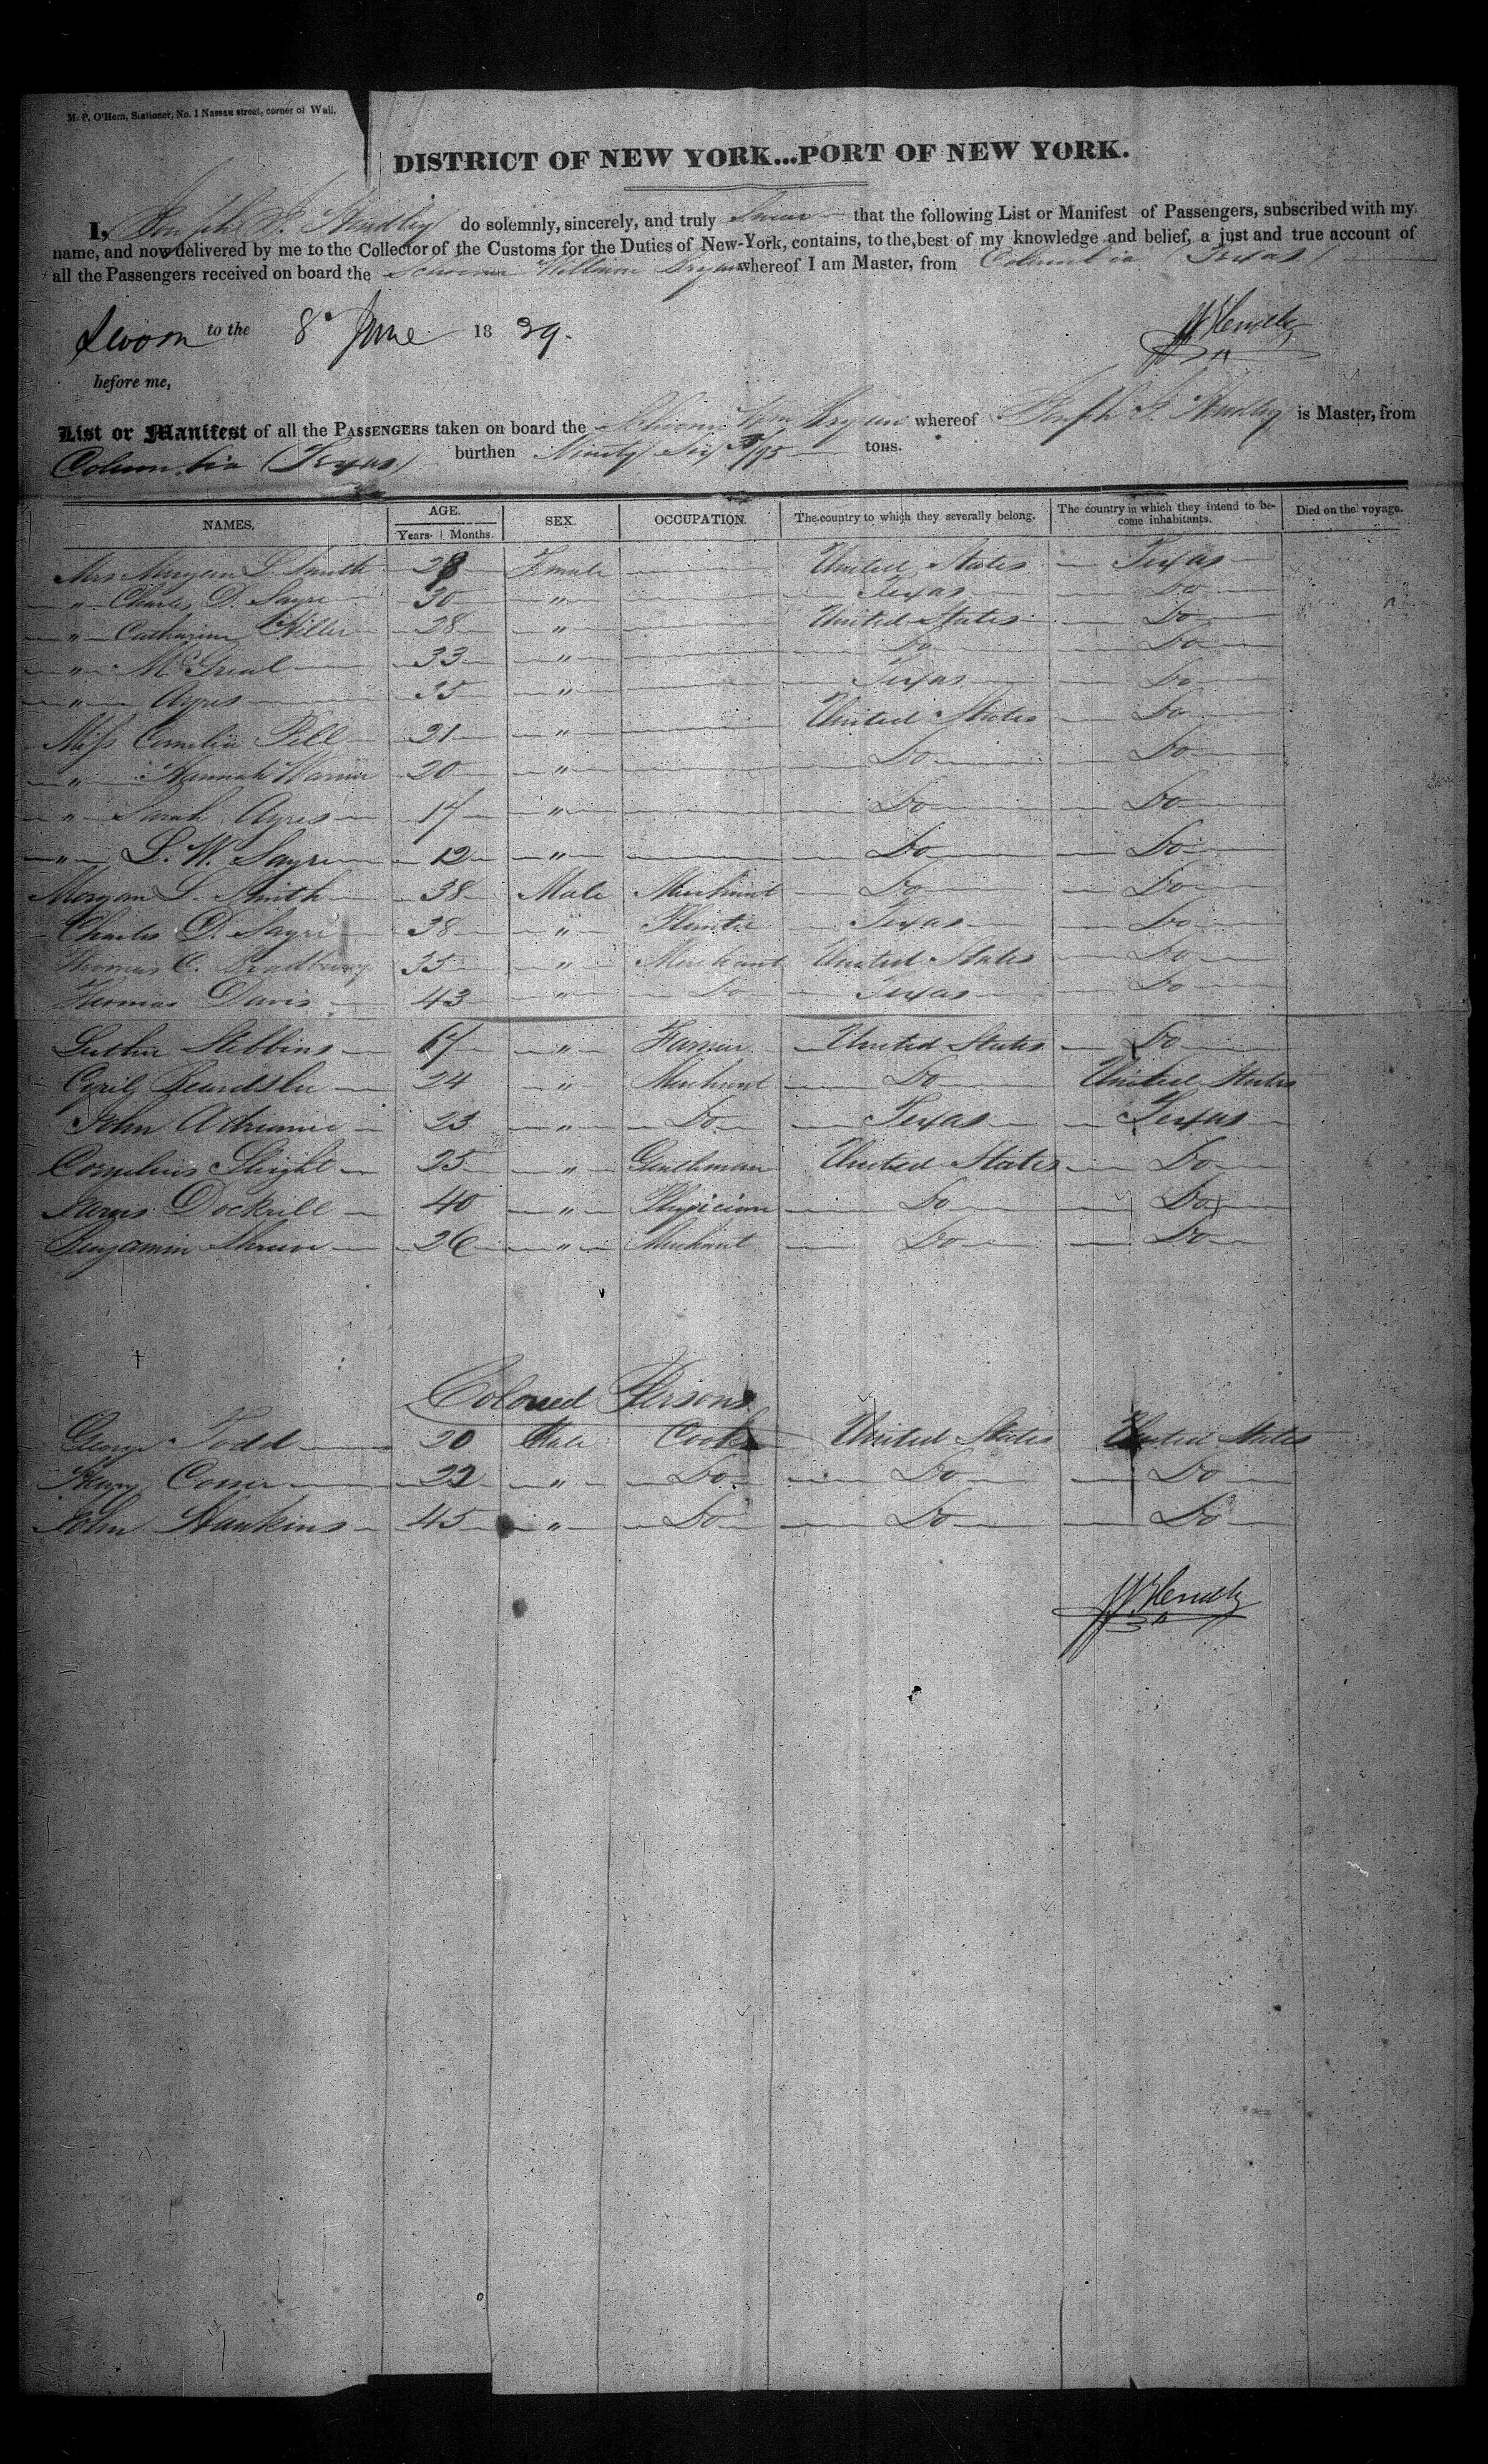 M. P. O'Hern, Stationer, No. 1 Nassau street, corner of Wall.
DISTRICT OF NEW YORK...PORT OF NEW YORK.
I, Joseph J. Hendley do solemnly, sincerely, and truly Swear that the following List or Manifest of Passengers, subscribed with my
name, and now delivered by me to the Collector of the Customs for the Duties of New-York, contains, to the best of my knowledge and belief, a just and true account of
all the Passengers received on board the Schooner William Bryan whereof I am Master, from Columbia (Texas)
Sworn to the 8 June 1839.
before me,
List or Manifest of all the PASSENGERS taken on board the Schooner Wm Bryan whereof Joseph J. Hendley is Master, from
Columbia (Texas) burthen Ninety Six /95 tons.
NAMES. AGE. SEX. OCCUPATION. The country to which they severally belong. The country in which they intend to be- Died on the voyage.
Years. Months. come inhabitants.
Mrs Morgan L. Smith 28 Female United States Texas
" Charles D. Sayre 30 " Texas Do
" Catharine Hiller 28 " United States Do
" McGreal 33 " Do Do
" Ayres 35 " Texas Do
Miss Cornelia Pell 21 " United States Do
" Hannah Warner 20 " Do Do
" Sarah Ayres 17 " Do Do
" L. W. Sayre 12 " Do Do
Morgan L. Smith 38 Male Merchant Do Do
Charles D. Sayre 38 " Planter Texas Do
Thomas C. Bradbury 35 " Merchant United States Do
Thomas Davis 43 " Do Texas Do
Luther Stebbins 67 " Farmer United States Do
Beardslee 24 " Merchant Do United States
John Adriance 23 " Do Texas Texas
Cornelius Sleight 25 " Gentleman United States Do
James Dockrill 40 " Physician Do Do
Benjamin Shreve 26 " Merchant Do Do
Colored Persons
George Todd 20 Male Cook United States United States
Henry 22 " Do Do Do
John Hawkins 45 " Do Do Do
JJ Hendley